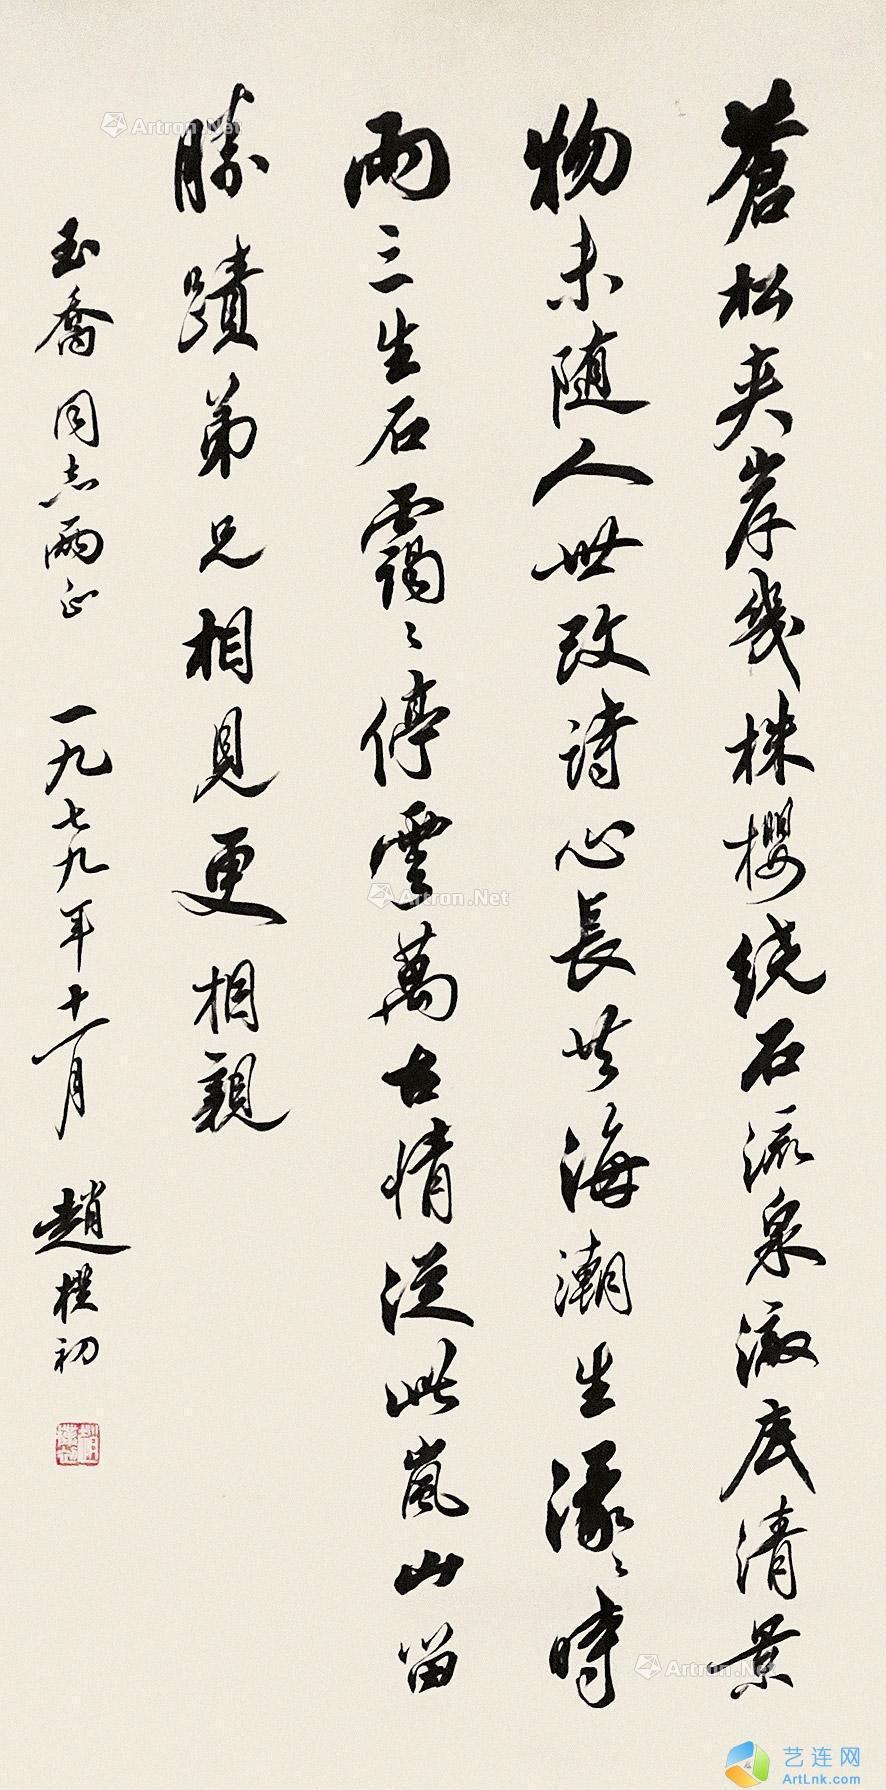 蒼松夾岸幾株櫻绕石流泉澈底清景
物未随人世改诗心長共海潮生濛〻時
雨三生石靄〻停雲萬古情從此嵐山留
勝蹟弟兄相見更相親
玉喬同志兩正 一九七九年十一月 趙樸初
趙樸初
Artron.Net
Artron.Net
Artron.Net
艺连网
ArtLnk.com